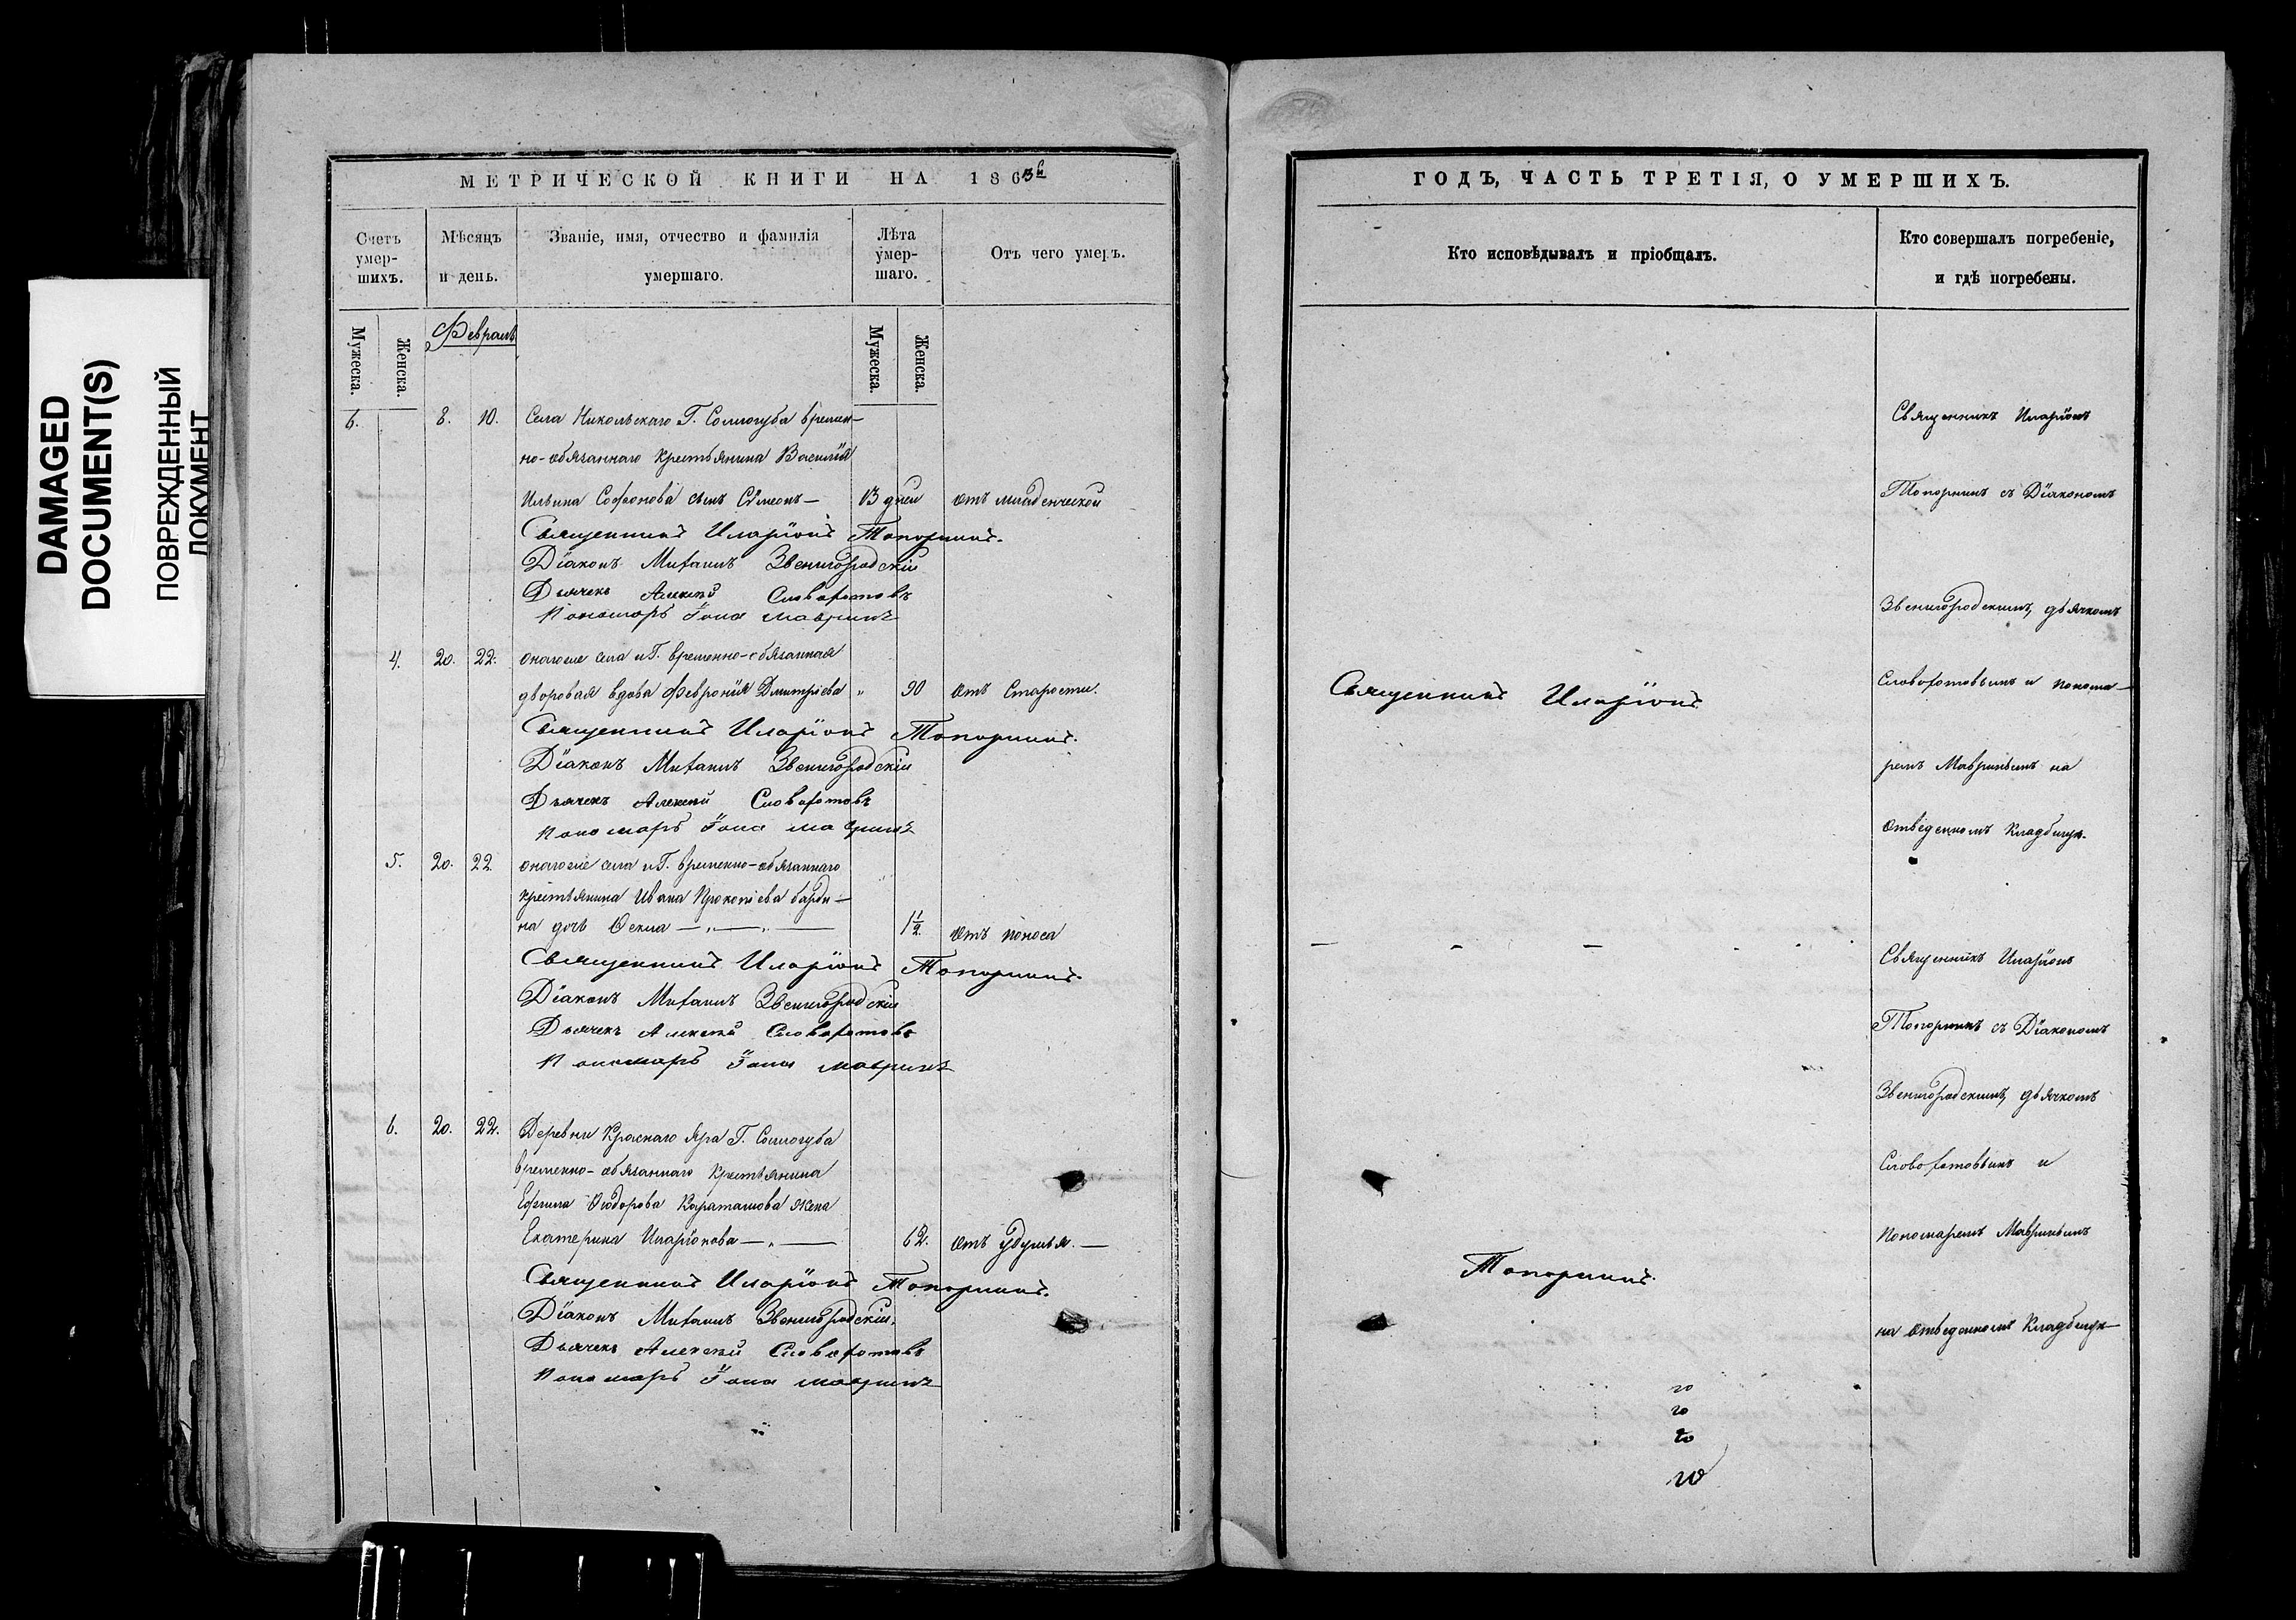 DAMAGED
DOCUMENT(S)
ПОВРЕЖДЕННЫЙ
ДОКУМЕНТ
МЕТРИЧЕСКОЙ КНИГИ НА 1863й
Счетъ умер-шихъ.
Мѣсяцъ и день.
Званіе, имя, отчество и фамилія умершаго.
Лѣта умер-шаго.
Отъ чего умеръ.
Мужеска.
Женска.
Февраль
Мужеска.
Женска.
6. 8. 10. Села Никольскаго Г. Соллогуба времен-
но-обязаннаго крестьянина Василія
Ильина Софонова сынъ Сѵмеонъ — 13 дней отъ младенческой
Священникъ Иларіонъ Топорнинъ.
Діаконъ Митаилъ Звенигородскій
Дьячекъ Алексѣй Словохотовъ
Пономарь Іона Мавринъ
4. 20. 22. Онаго же села и Г. временно-обязанная
дворовая вдова Февронія Дмитріева " 90 отъ Старости.
Священникъ Иларіонъ Топорнинъ.
Діаконъ Митаилъ Звенигородскій
Дьячекъ Алексѣй Словохотовъ
Пономарь Іона Мавринъ
5. 20. 22. Онаго же села и Г. временно-обязаннаго
крестьянина Ивана Прокопіева Барди-
на дочь Ѳекла — " — " — 1½ отъ поноса
Священникъ Иларіонъ Топорнинъ.
Діаконъ Митаилъ Звенигородскій
Дьячекъ Алексѣй Словохотовъ
Пономарь Іона Мавринъ
6. 20. 22. Деревни Краснаго Яра Г. Соллогуба
временно-обязаннаго крестьянина
Ефима Ѳеодорова Караташова жена
Екатерина Иларіонова — " — 62. отъ удушья. —
Священникъ Иларіонъ Топорнинъ.
Діаконъ Митаилъ Звенигородскій.
Дьячекъ Алексѣй Словохотовъ
Пономарь Іона Мавринъ
ГОДЪ, ЧАСТЬ ТРЕТІЯ, О УМЕРШИХЪ.
Кто исповѣдывалъ и пріобщалъ.
Кто совершалъ погребеніе,
и гдѣ погребены.
Священникъ Иларіонъ
Топорнинъ.
Священникъ Иларіонъ
Топорнинъ съ Діакономъ
Звенигородскимъ, дьячкомъ
Словохотовымъ и понома-
ремъ Мавринымъ на
отведенномъ кладбищѣ.
Священникъ Иларіонъ
Топорнинъ съ Діакономъ
Звенигородскимъ, дьячкомъ
Словохотовымъ и
Пономаремъ Мавринымъ
на отведенномъ Кладбищѣ —